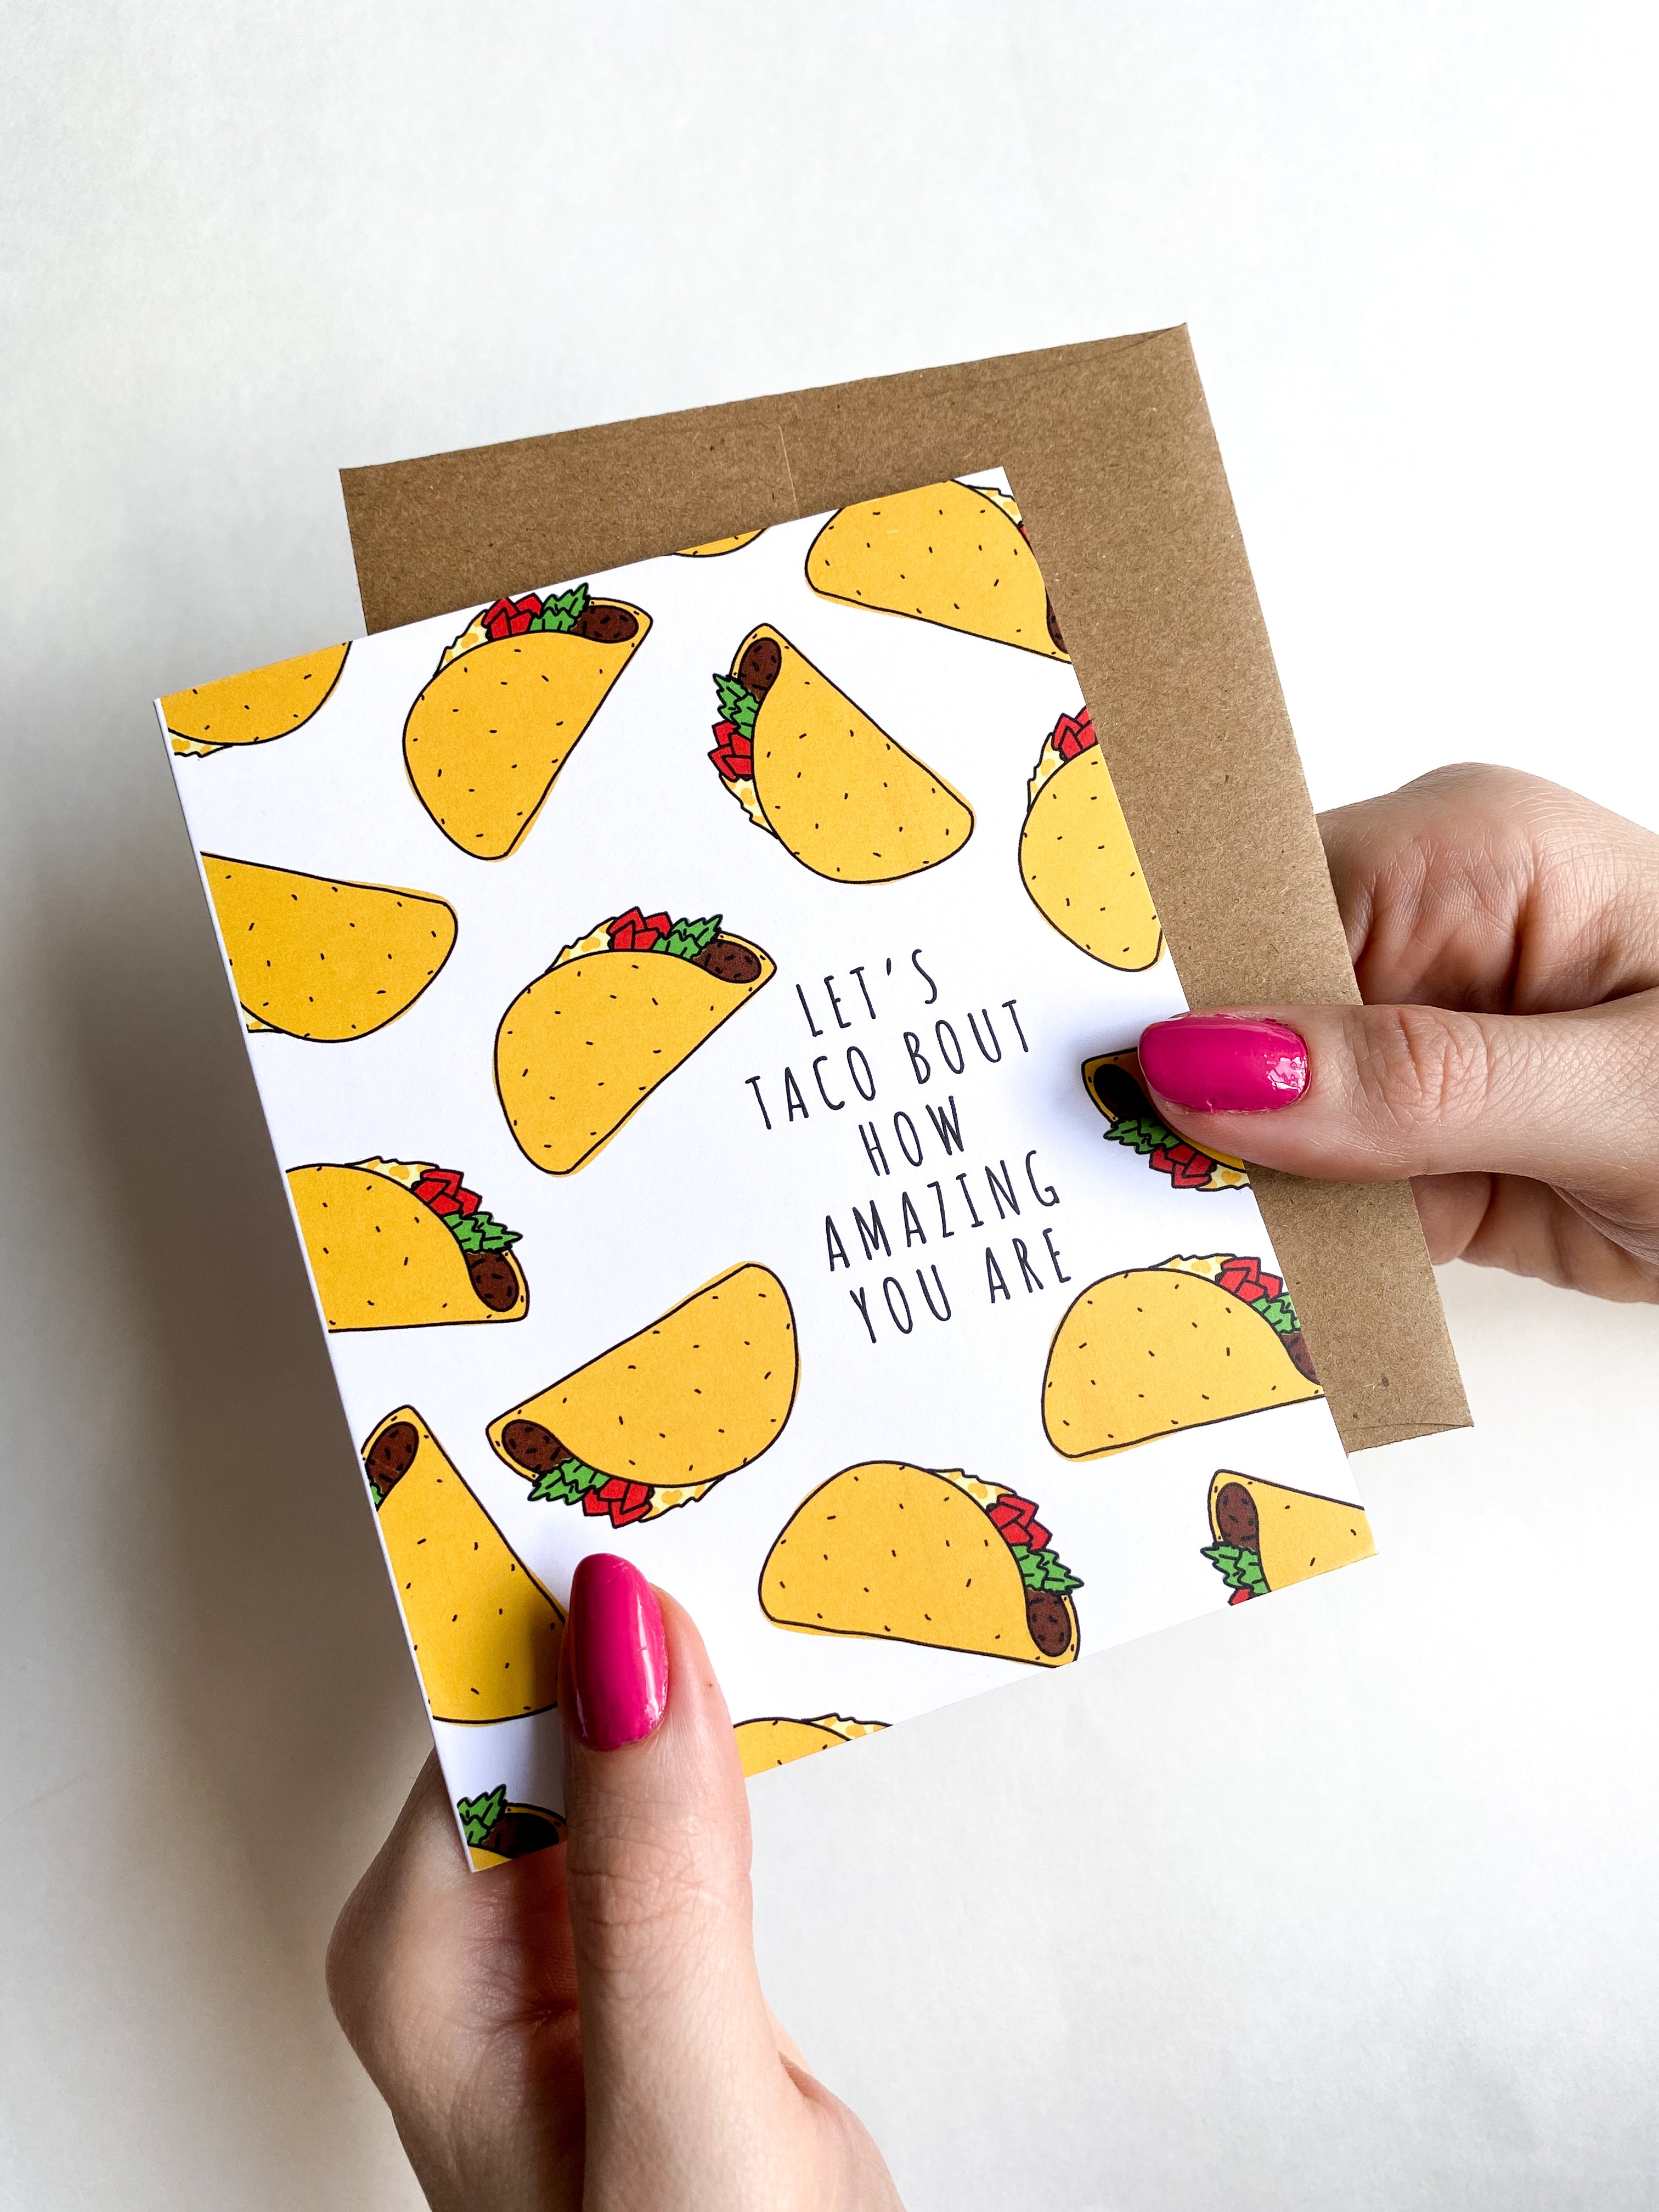 LET'S
TACO BOUT
HOW
AMAZING
YOU ARE